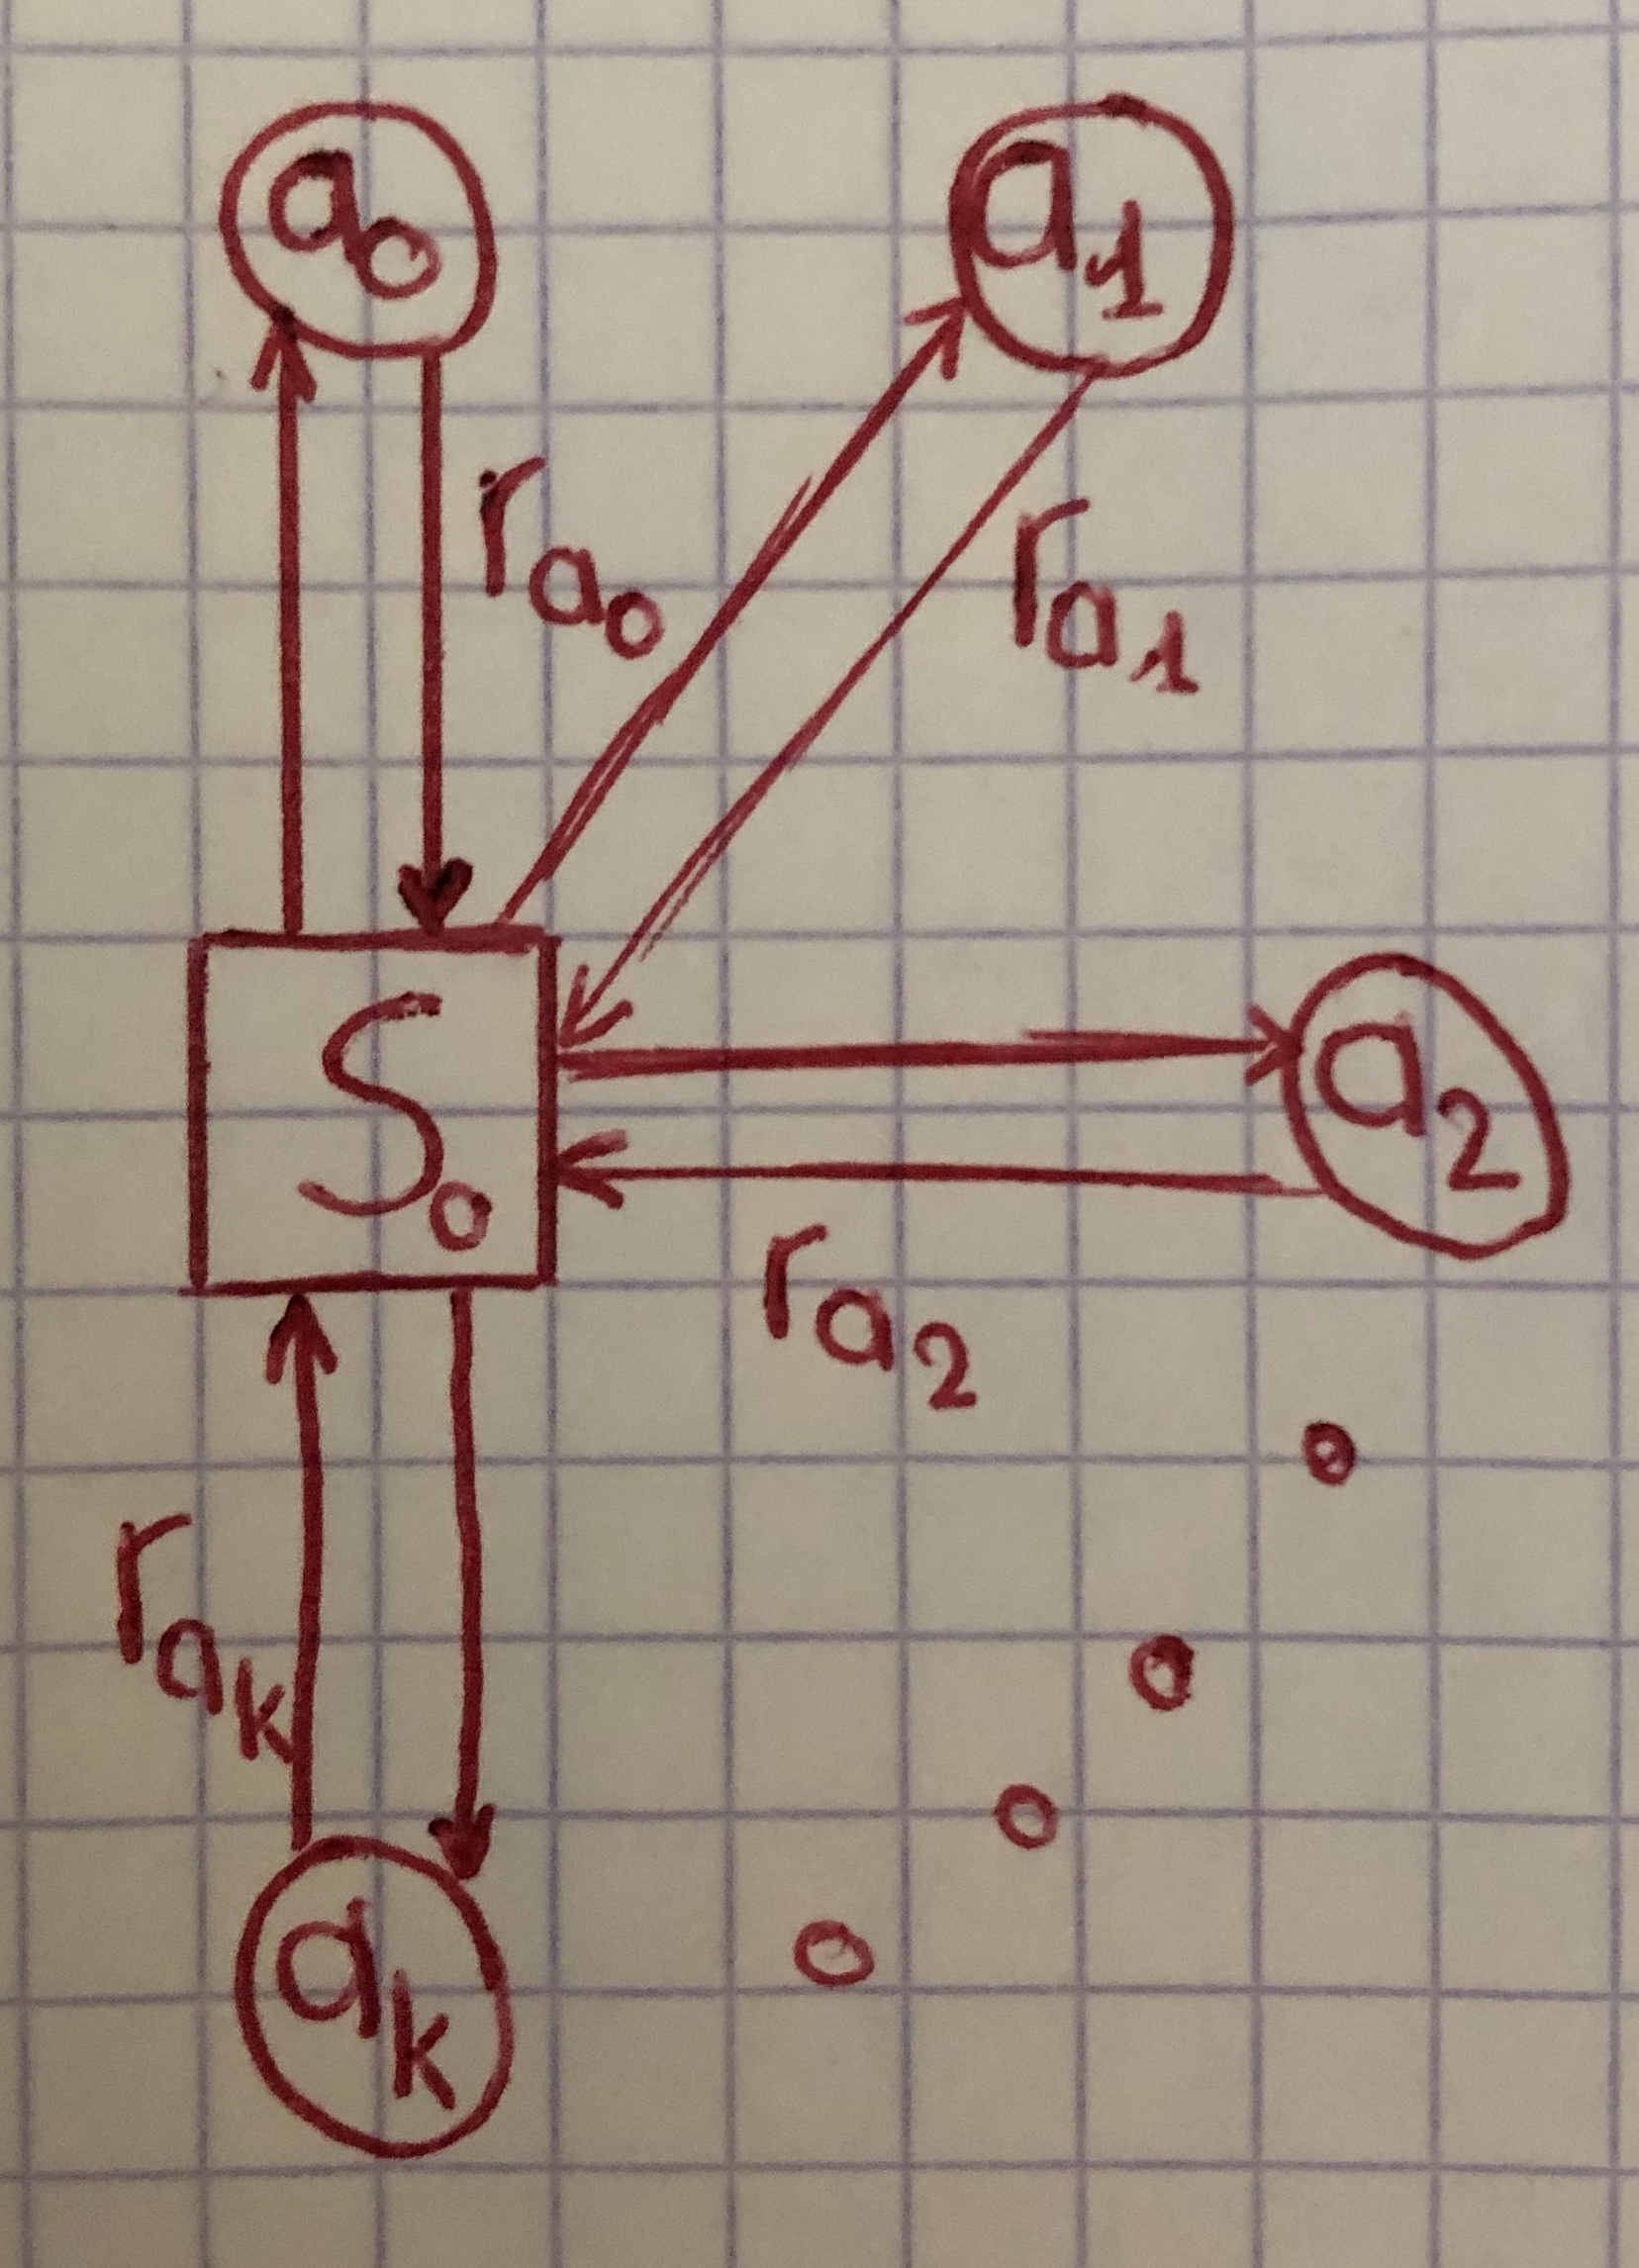 a₀
a₁
rₐ₀
rₐ₁
S₀
a₂
rₐ₂
rₐₖ
aₖ